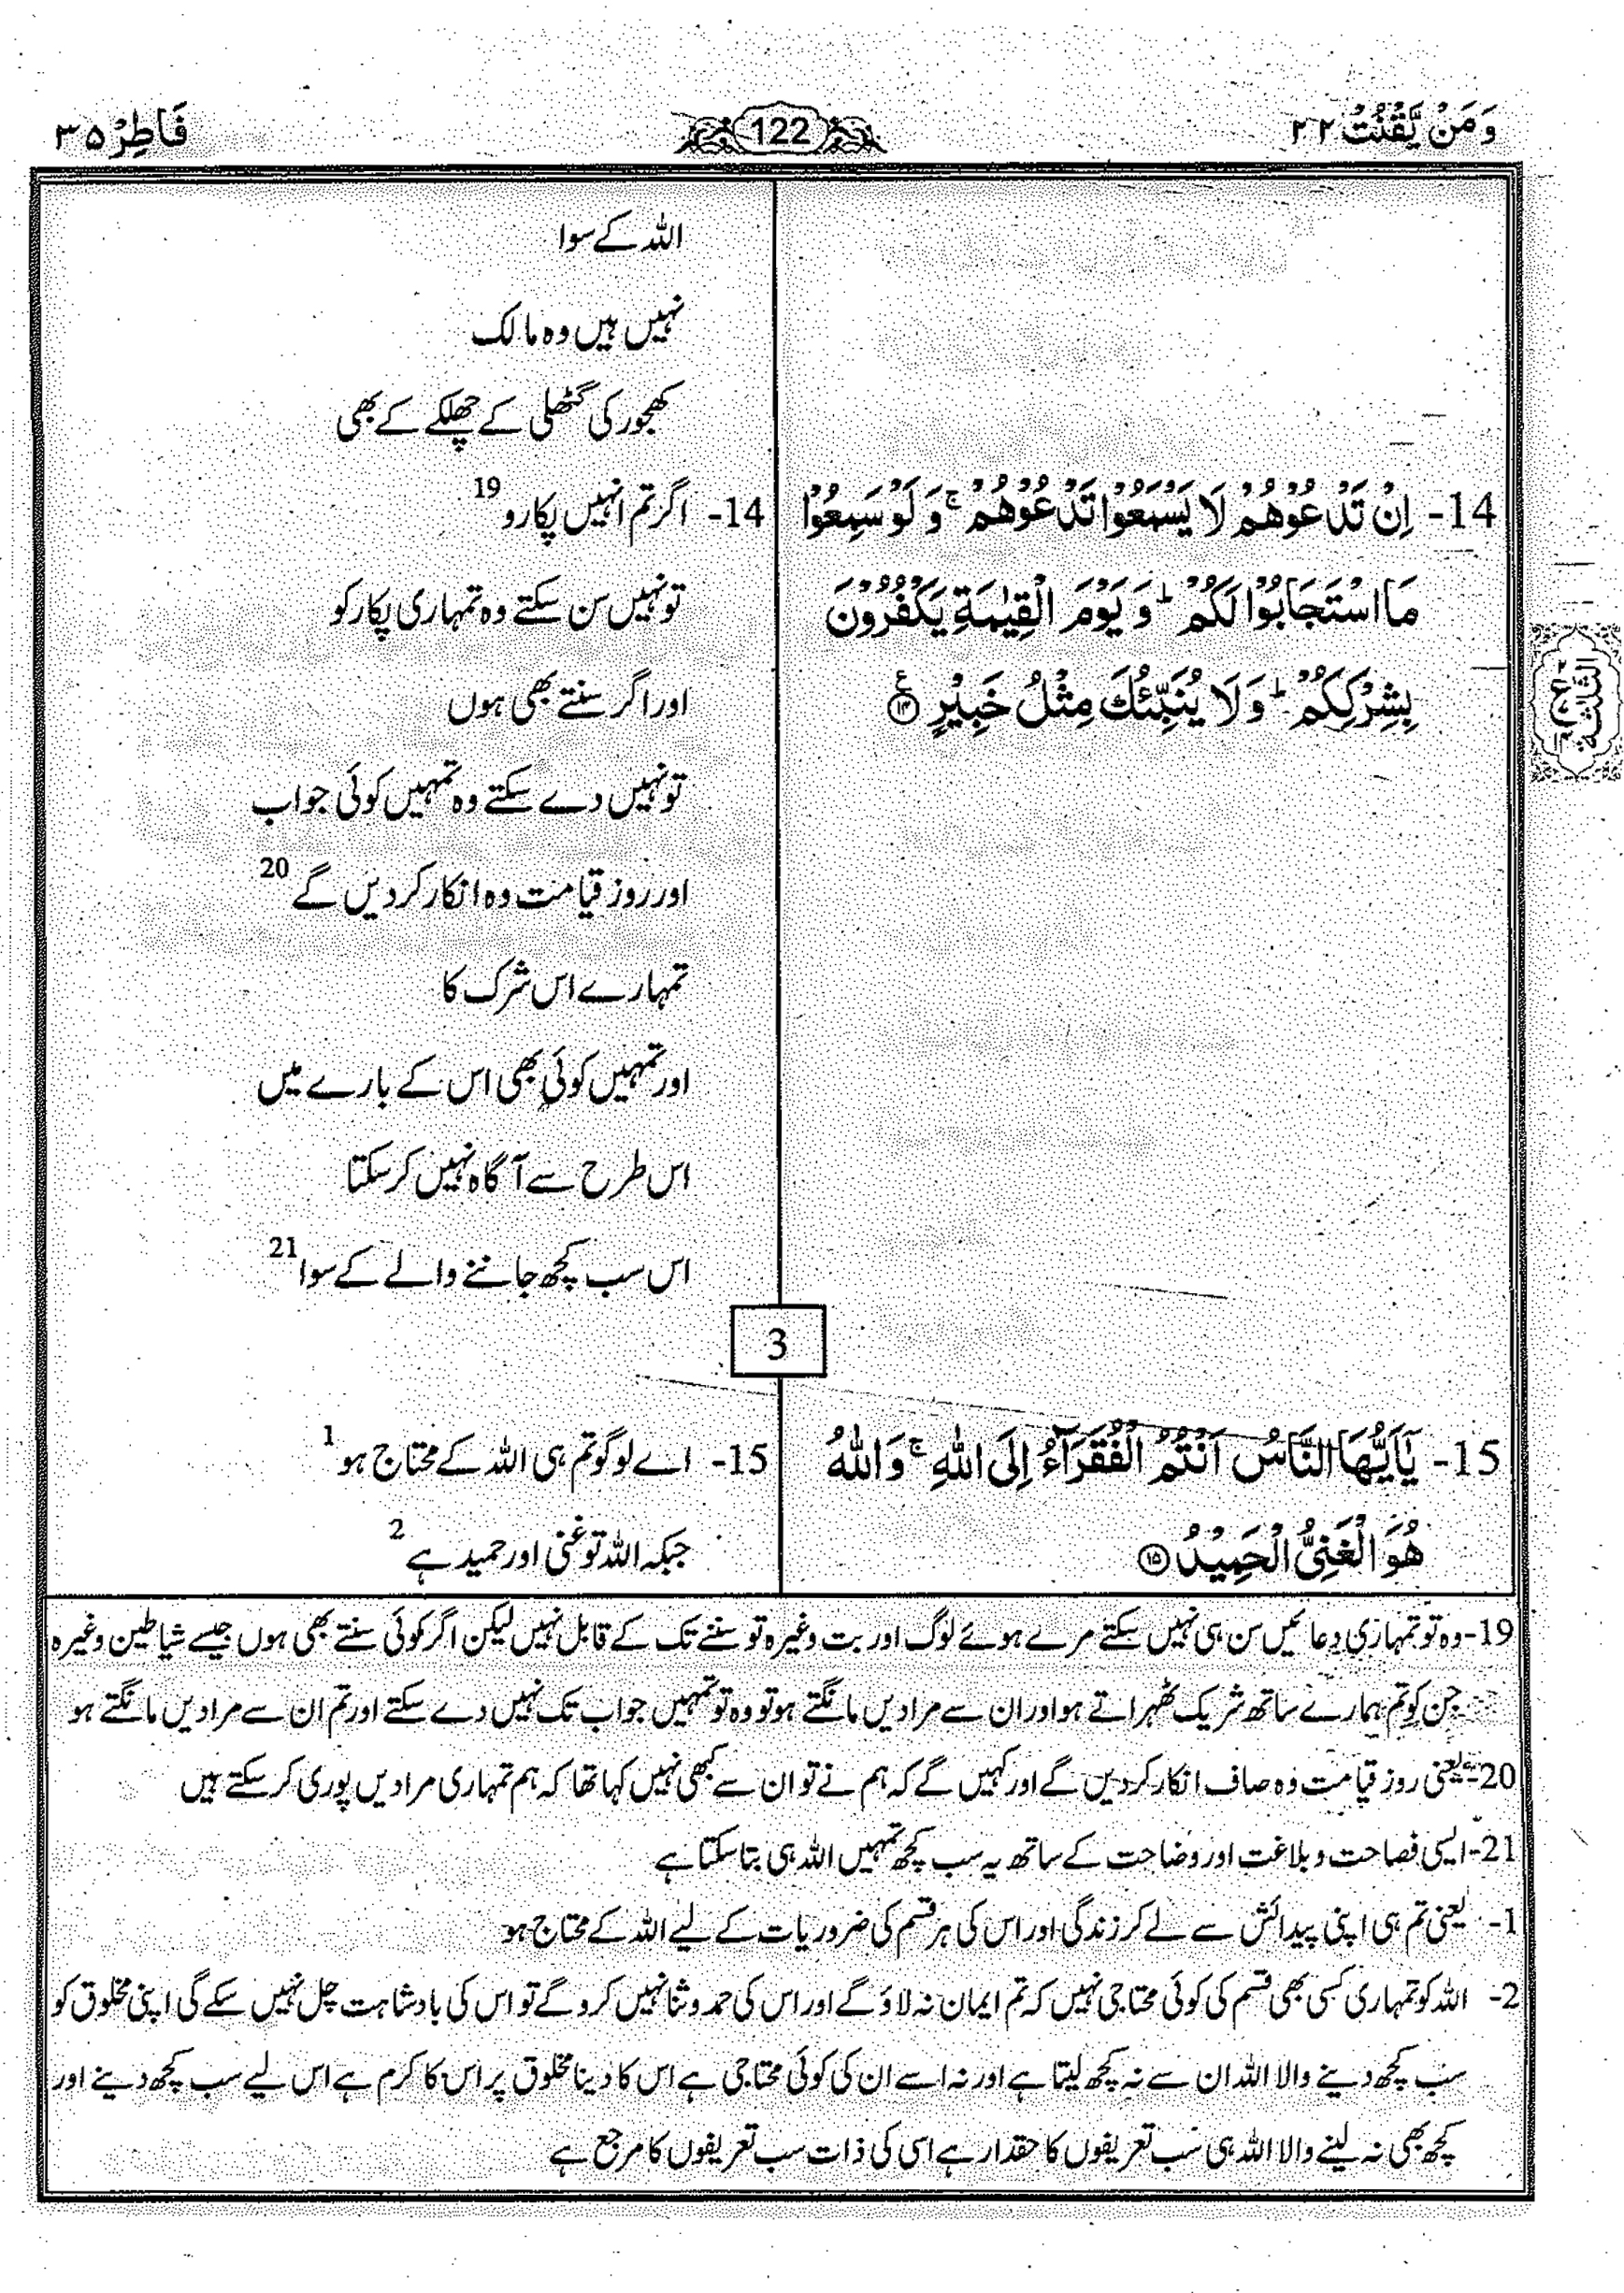 وَمَنْ يَّقْنُتْ ۲۲
122
فَاطِرْ ۳۵
اللہ کے سوا
نہیں ہیں وہ مالک
کھجور کی گٹھلی کے چھلکے کے بھی
14- اِنْ تَدْعُوْهُمْ لَا يَسْمَعُوْا تَدْعُوْهُمْ ۚ وَ لَوْ سَمِعُوْا
مَا اسْتَجَابُوْا لَكُمْ ؕ وَ يَوْمَ الْقِيٰمَةِ يَكْفُرُوْنَ
بِشِرْكِكُمْ ؕ وَلَا يُنَبِّئُكَ مِثْلُ خَبِيْرٍ ۝۱۴ ع
14- اگر تم انہیں پکارو 19
تو نہیں سن سکتے وہ تمہاری پکار کو
اور اگر سنتے بھی ہوں
تو نہیں دے سکتے وہ تمہیں کوئی جواب
اور روز قیامت وہ انکار کر دیں گے 20
تمہارے اس شرک کا
اور تمہیں کوئی بھی اس کے بارے میں
اس طرح سے آگاہ نہیں کر سکتا
اس سب کچھ جاننے والے کے سوا 21
الثلثة
3
15- يٰٓاَيُّهَا النَّاسُ اَنْتُمُ الْفُقَرَآءُ اِلَى اللّٰهِ ۚ وَاللّٰهُ
هُوَ الْغَنِيُّ الْحَمِيْدُ ۝۱۵
15- اے لوگو تم ہی اللہ کے محتاج ہو 1
جبکہ اللہ تو غنی اور حمید ہے 2
19- وہ تو تمہاری دعائیں سن ہی نہیں سکتے مرے ہوئے لوگ اور بت وغیرہ تو سننے تک کے قابل نہیں لیکن اگر کوئی سنتے بھی ہوں جیسے شیاطین وغیرہ
جن کو تم ہمارے ساتھ شریک ٹھہراتے ہو اور ان سے مرادیں مانگتے ہو تو وہ تو تمہیں جواب تک نہیں دے سکتے اور تم ان سے مرادیں مانگتے ہو
20- یعنی روز قیامت وہ صاف انکار کر دیں گے اور کہیں گے کہ ہم نے تو ان سے کبھی نہیں کہا تھا کہ ہم تمہاری مرادیں پوری کر سکتے ہیں
21- ایسی فصاحت و بلاغت اور وضاحت کے ساتھ یہ سب کچھ تمہیں اللہ ہی بتا سکتا ہے
1- یعنی تم ہی اپنی پیدائش سے لے کر زندگی اور اس کی ہر قسم کی ضروریات کے لیے اللہ کے محتاج ہو
2- اللہ کو تمہاری کسی بھی قسم کی کوئی محتاجی نہیں کہ تم ایمان نہ لاؤ گے اور اس کی حمد و ثنا نہیں کرو گے تو اس کی بادشاہت چل نہیں سکے گی اپنی مخلوق کو
سب کچھ دینے والا اللہ ان سے نہ کچھ لیتا ہے اور نہ اسے ان کی کوئی محتاجی ہے اس کا دینا مخلوق پر اس کا کرم ہے اس لیے سب کچھ دینے اور
کچھ بھی نہ لینے والا اللہ ہی سب تعریفوں کا حقدار ہے اسی کی ذات سب تعریفوں کا مرجع ہے